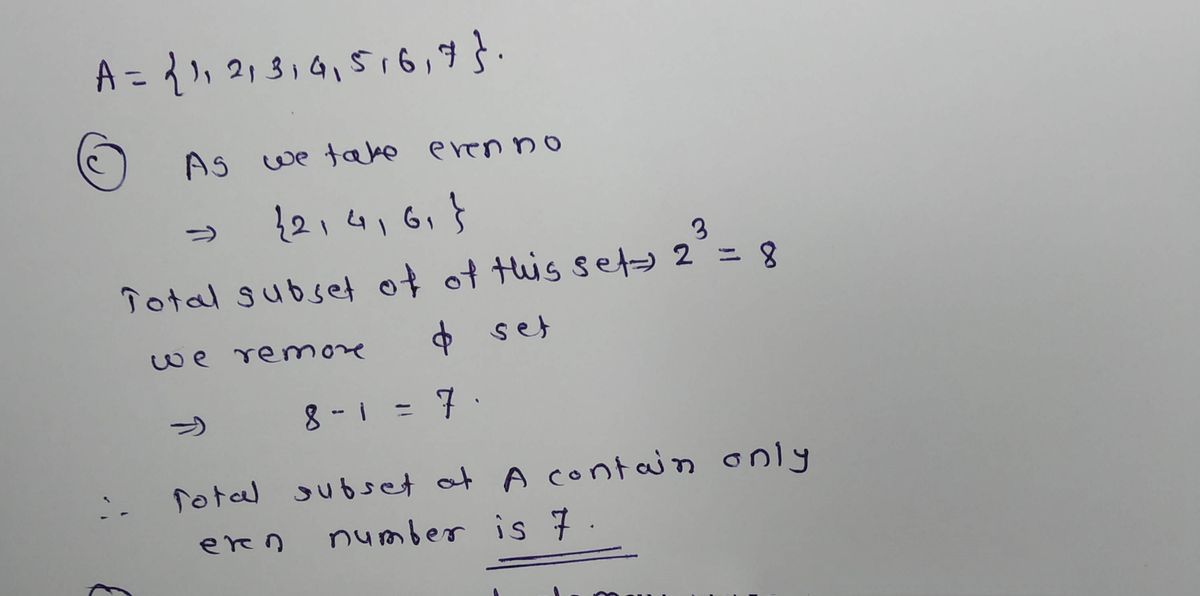 A = {1, 2, 3, 4, 5, 6, 7}.
(c) As we take even no
⇒ {2, 4, 6, }
Total subset of of this set ⇒ 2³ = 8
we remove ϕ set
⇒ 8 - 1 = 7.
∴ Total subset of A contain only
even number is 7.